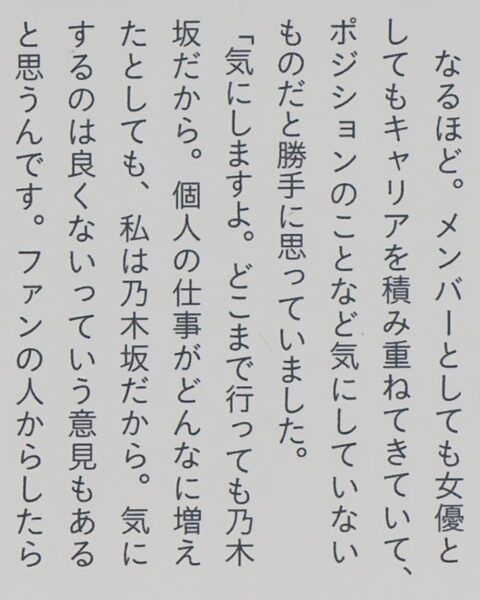 なるほど。メンバーとしても女優と
してもキャリアを積み重ねてきていて、
ポジションのことなど気にしていない
ものだと勝手に思っていました。
「気にしますよ。どこまで行っても乃木
坂だから。個人の仕事がどんなに増え
たとしても、私は乃木坂だから。気に
するのは良くないっていう意見もある
と思うんです。ファンの人からしたら